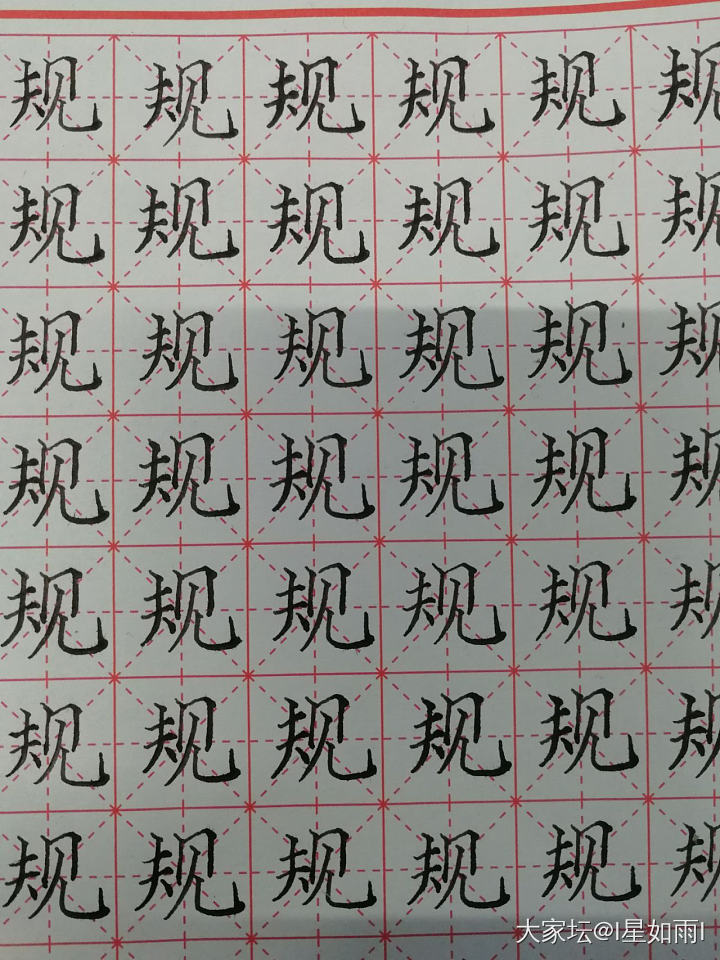 规规规规规规
规规规规规规
规规规规规规
规规规规规规
规规规规规规
规规规规规规
规规规规规规
大家坛@l星如雨l